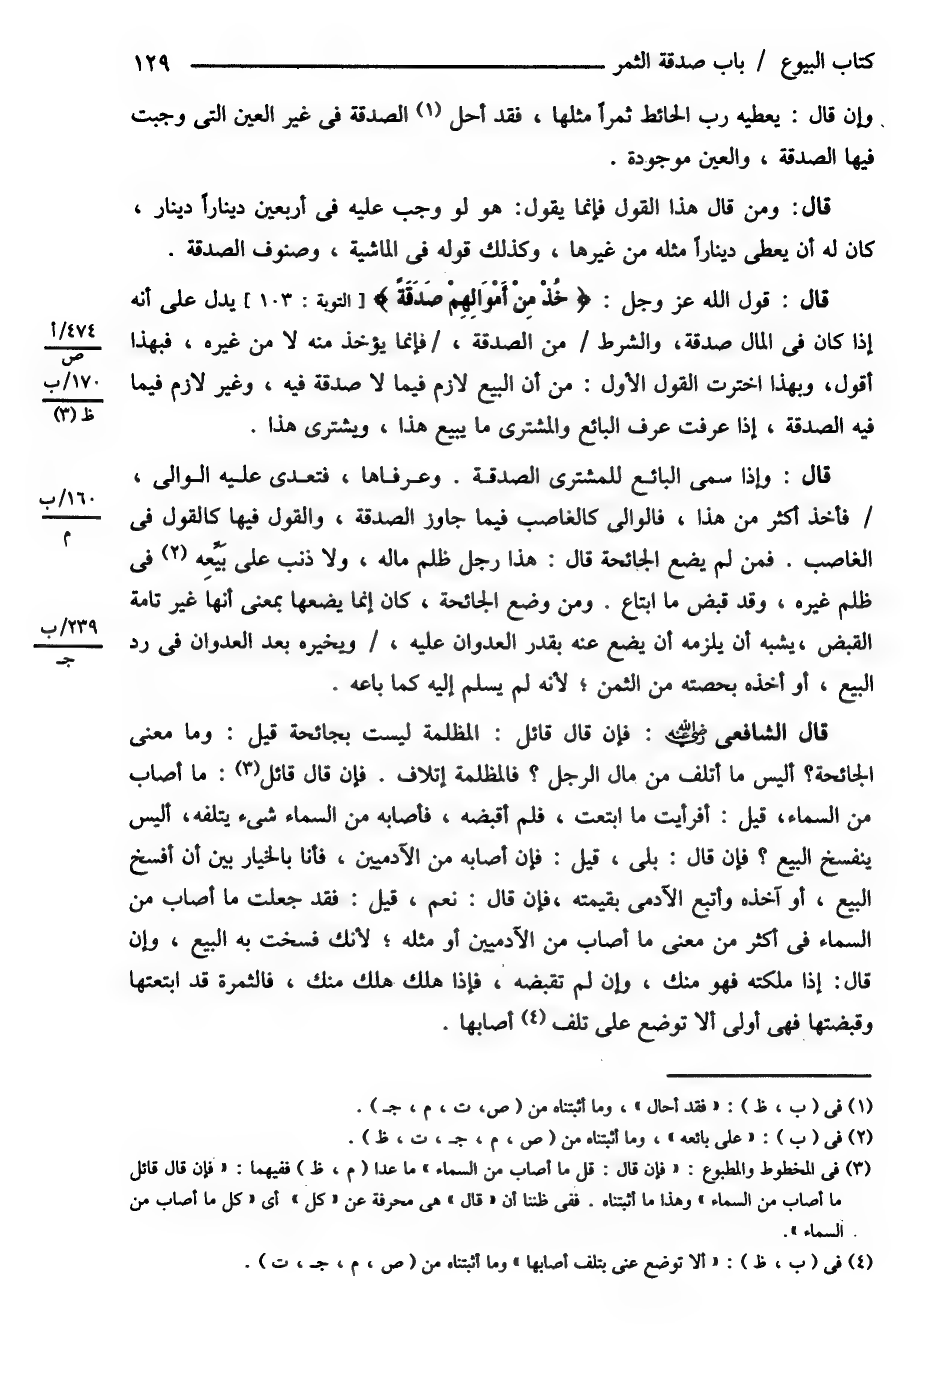 كتاب البيوع / باب صدقة الثمر ١٢٩
وإن قال : يعطيه رب الحائط ثمراً مثلها ، فقد أحل (١) الصدقة فى غير العين التى وجبت
فيها الصدقة ، والعين موجودة .
قال : ومن قال هذا القول فإنما يقول: هو لو وجب عليه فى أربعين ديناراً دينار ،
كان له أن يعطى ديناراً مثله من غيرها ، وكذلك قوله فى الماشية ، وصنوف الصدقة .
قال : قول الله عز وجل : ﴿ خُذْ مِنْ أَمْوَالِهِمْ صَدَقَةً ﴾ [ التوبة : ١٠٣ ] يدل على أنه
إذا كان فى المال صدقة، والشرط / من الصدقة ، /فإنما يؤخذ منه لا من غيره ، فبهذا
أقول، وبهذا اخترت القول الأول : من أن البيع لازم فيما لا صدقة فيه ، وغير لازم فيما
فيه الصدقة ، إذا عرفت عرف البائع والمشترى ما يبيع هذا ، ويشترى هذا .
٤٧٤/أ
ص
١٧٠/ب
ظ (٣)
قال : وإذا سمى البائع للمشترى الصدقة . وعرفاها ، فتعدى عليه الوالى ،
/ فأخذ أكثر من هذا ، فالوالى كالغاصب فيما جاوز الصدقة ، والقول فيها كالقول فى
الغاصب . فمن لم يضع الجائحة قال : هذا رجل ظلم ماله ، ولا ذنب على بَيِّعِه (٢) فى
ظلم غيره ، وقد قبض ما ابتاع . ومن وضع الجائحة ، كان إنما يضعها بمعنى أنها غير تامة
القبض ،يشبه أن يلزمه أن يضع عنه بقدر العدوان عليه ، / ويخيره بعد العدوان فى رد
البيع ، أو أخذه بحصته من الثمن ؛ لأنه لم يسلم إليه كما باعه .
١٦٠/ب
م
٢٣٩/ب
جـ
قال الشافعى رضي الله عنه : فإن قال قائل : المظلمة ليست بجائحة قيل : وما معنى
الجائحة؟ أليس ما أتلف من مال الرجل ؟ فالمظلمة إتلاف . فإن قال قائل(٣) : ما أصاب
من السماء، قيل : أفرأيت ما ابتعت ، فلم أقبضه ، فأصابه من السماء شىء يتلفه، أليس
ينفسخ البيع ؟ فإن قال : بلى ، قيل : فإن أصابه من الآدميين ، فأنا بالخيار بين أن أفسخ
البيع ، أو آخذه وأتبع الآدمى بقيمته ،فإن قال : نعم ، قيل : فقد جعلت ما أصاب من
السماء فى أكثر من معنى ما أصاب من الآدميين أو مثله ؛ لأنك فسخت به البيع ، وإن
قال: إذا ملكته فهو منك ، وإن لم تقبضه ، فإذا هلك هلك منك ، فالثمرة قد ابتعتها
وقبضتها فهى أولى ألا توضع على تلف (٤) أصابها .
(١) فى ( ب ، ظ ) : « فقد أحال » ، وما أثبتناه من ( ص، ت ، م ، جـ ) .
(٢) فى ( ب ) : « على بائعه » ، وما أثبتناه من ( ص ، م ، جـ ، ت ، ظ ) .
(٣) فى المخطوط والمطبوع : « فإن قال : قل ما أصاب من السماء » ما عدا ( م ، ظ ) ففيهما : « فإن قال قائل
ما أصاب من السماء » وهذا ما أثبتناه . ففى ظننا أن « قال » هى محرفة عن « كل » أى « كل ما أصاب من
السماء ».
(٤) فى ( ب ، ظ ) : « ألا توضع عنى بتلف أصابها » وما أثبتناه من ( ص ، م ، جـ ، ت ) .